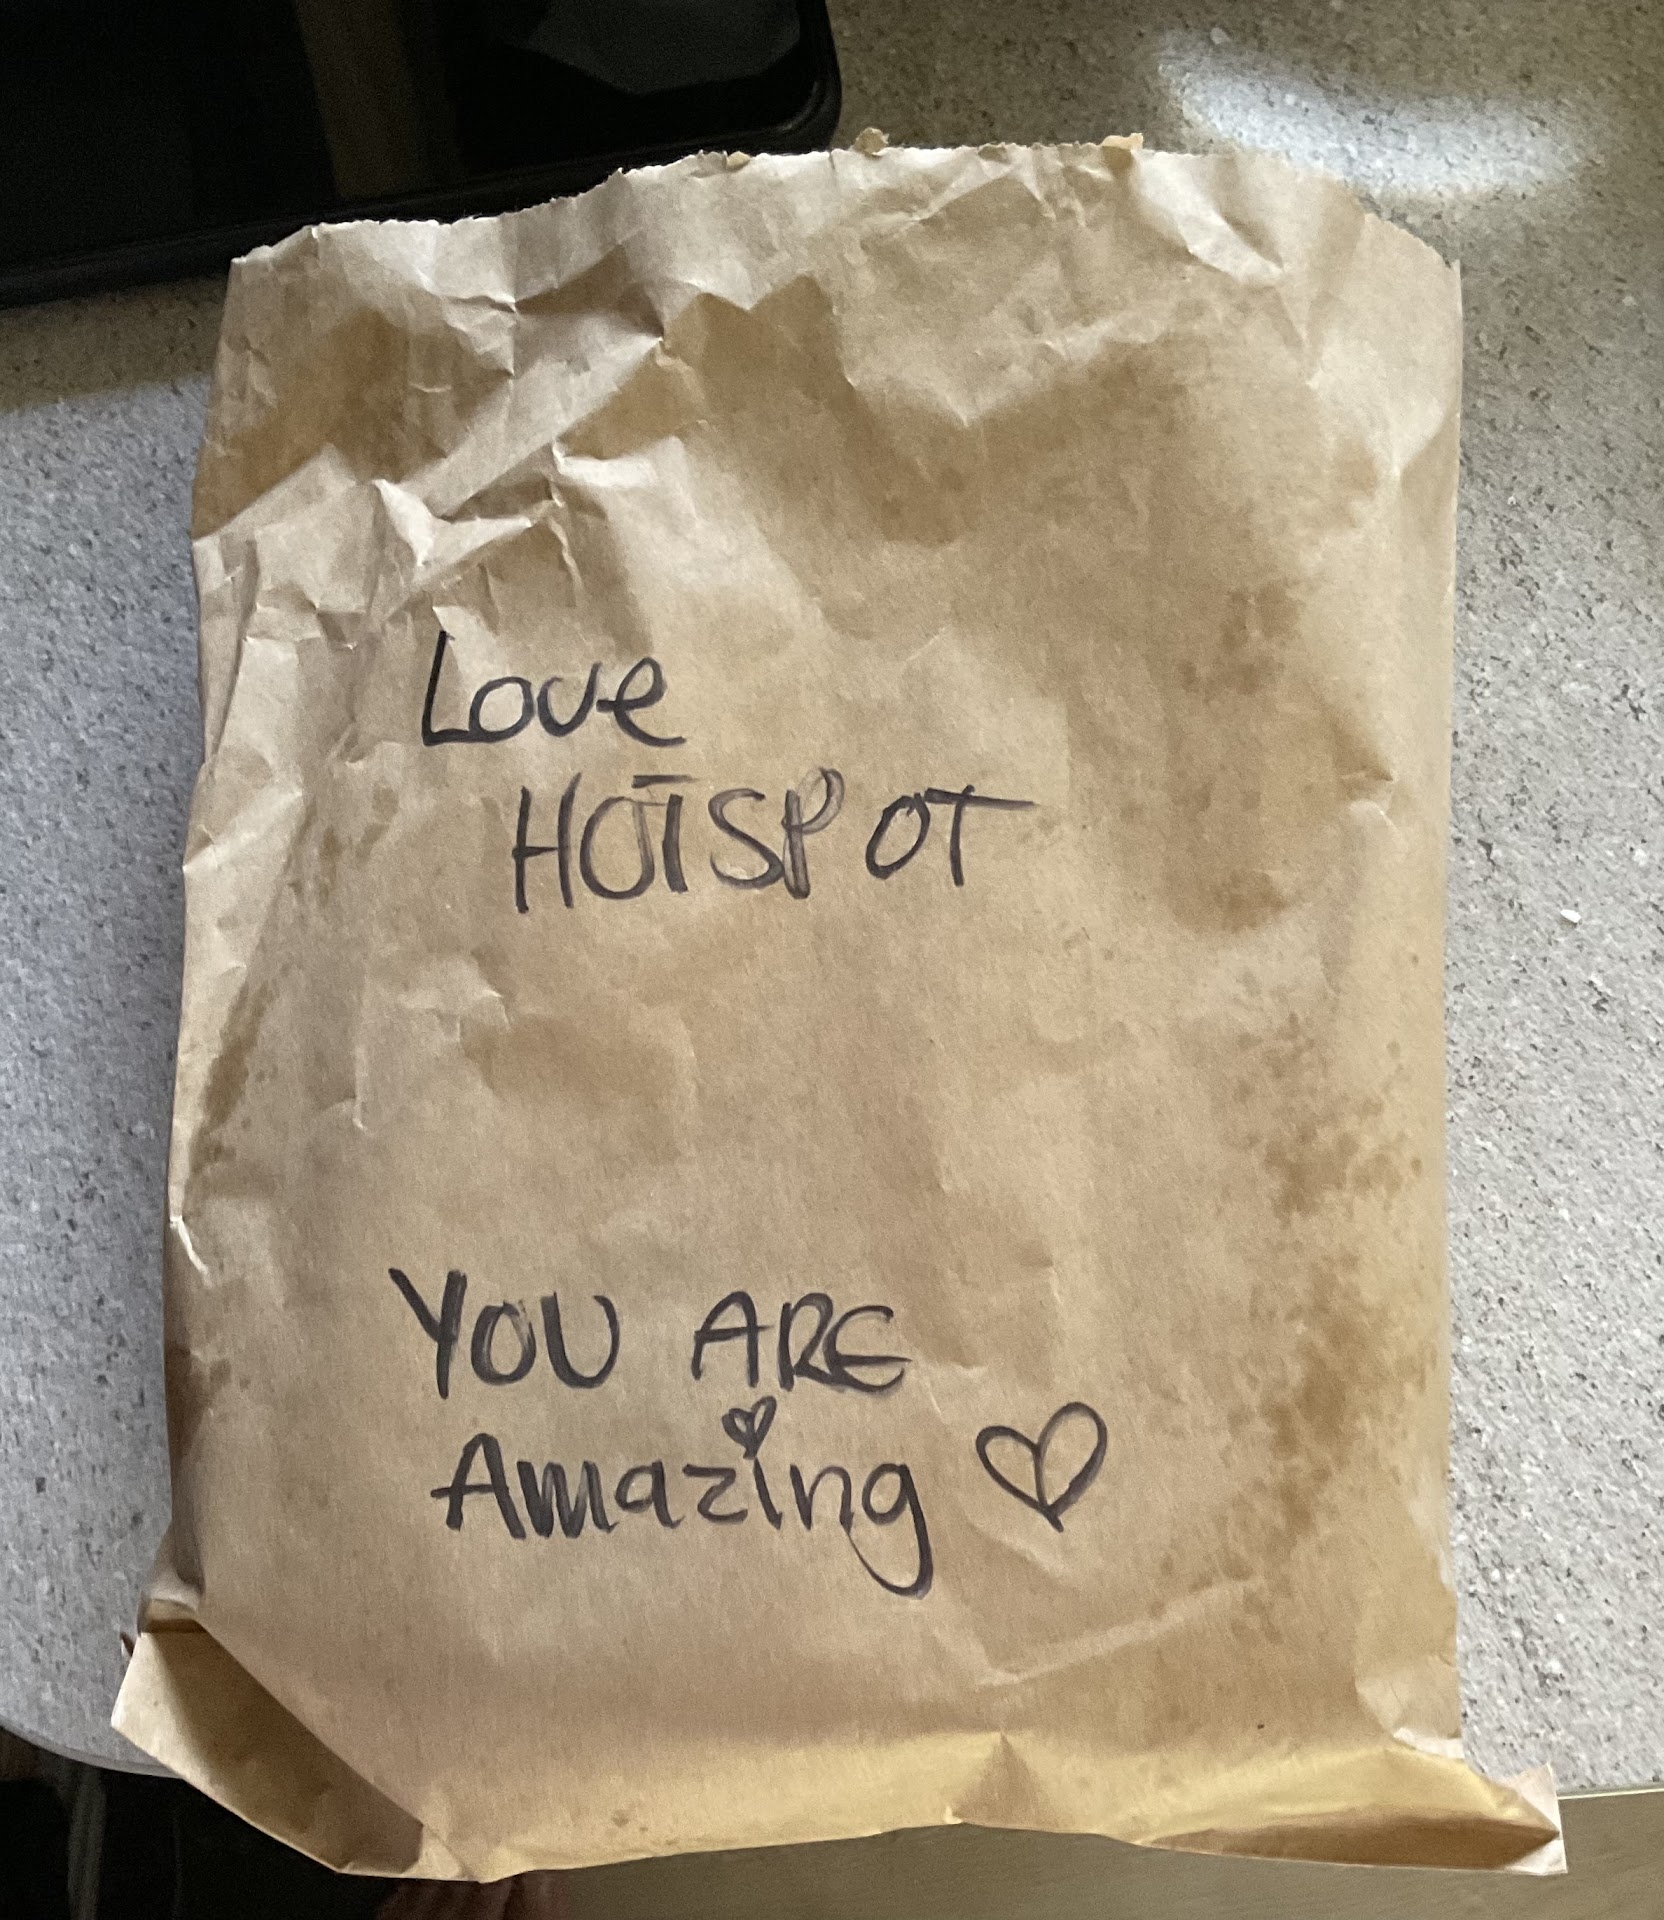 Love
HOTSPOT
YOU ARE
Amazing